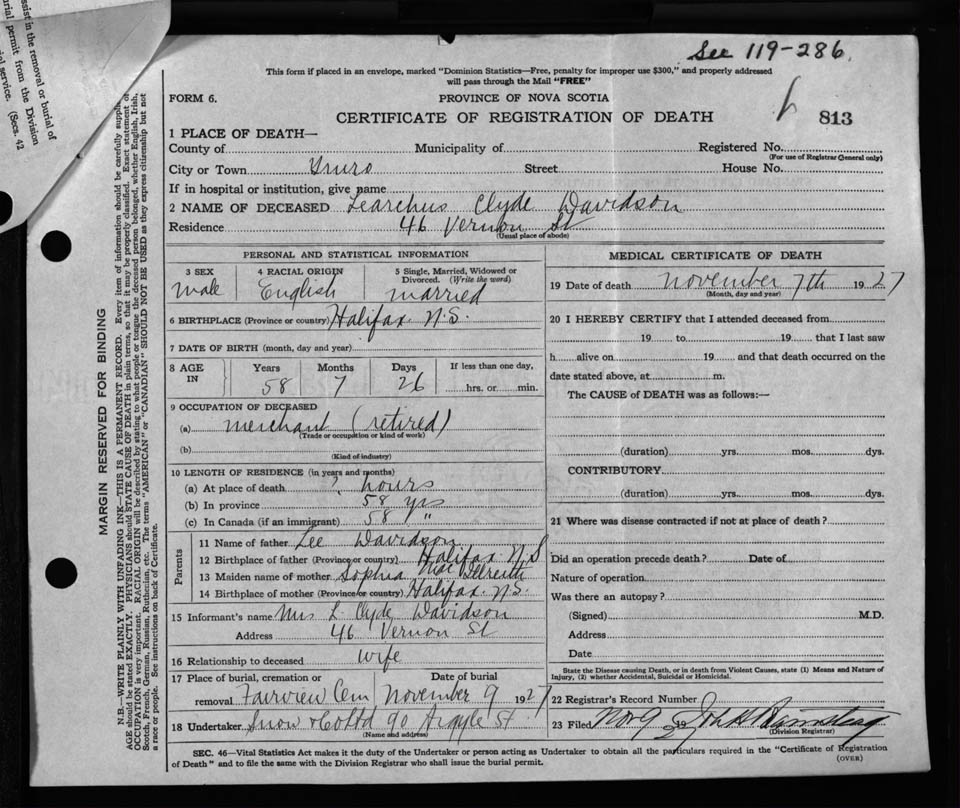 See 119-286
This form if placed in an envelope, marked "Dominion Statistics—Free, penalty for improper use $300," and properly addressed
will pass through the Mail "FREE"
FORM 6.
PROVINCE OF NOVA SCOTIA
CERTIFICATE OF REGISTRATION OF DEATH
813
1 PLACE OF DEATH—
County of Municipality of Registered No.
(For use of Registrar General only)
City or Town Truro Street House No.
If in hospital or institution, give name
2 NAME OF DECEASED Learchus Clyde Davidson
Residence 46 Vernon St
(Usual place of abode)
PERSONAL AND STATISTICAL INFORMATION
3 SEX 4 RACIAL ORIGIN 5 Single, Married, Widowed or
Divorced. (Write the word)
Male English married
6 BIRTHPLACE (Province or country) Halifax N.S.
7 DATE OF BIRTH (month, day and year)
8 AGE IN Years Months Days If less than one day,
58 7 26 hrs. or min.
9 OCCUPATION OF DECEASED
(a) merchant (retired)
(Trade or occupation or kind of work)
(b)
(Kind of industry)
10 LENGTH OF RESIDENCE (in years and months)
(a) At place of death ? hours
(b) In province 58 yrs
(c) In Canada (if an immigrant) 58 "
Parents
11 Name of father Lee Davidson
12 Birthplace of father (Province or country) Halifax N.S
13 Maiden name of mother Sophia
14 Birthplace of mother (Province or country) Halifax N.S.
15 Informant's name Mrs L. Clyde Davidson
Address 46 Vernon St
16 Relationship to deceased wife
17 Place of burial, cremation or Date of burial
removal Fairview Cem November 9 1927
18 Undertaker Snow & Co Ltd 90 Argyle St
(Name and address)
MEDICAL CERTIFICATE OF DEATH
19 Date of death November 7th 1927
(Month, day and year)
20 I HEREBY CERTIFY that I attended deceased from
19 to 19 that I last saw
h alive on 19 and that death occurred on the
date stated above, at m.
The CAUSE of DEATH was as follows:—
(duration) yrs. mos. dys.
CONTRIBUTORY
(duration) yrs. mos. dys.
21 Where was disease contracted if not at place of death?
Did an operation precede death? Date of
Nature of operation
Was there an autopsy?
(Signed) M.D.
Address
Date
State the Disease causing Death, or in death from Violent Causes, state (1) Means and Nature of
Injury, (2) whether Accidental, Suicidal or Homicidal.
22 Registrar's Record Number
23 Filed Nov 9 19 27
(Division Registrar)
SEC. 46—Vital Statistics Act makes it the duty of the Undertaker or person acting as Undertaker to obtain all the particulars required in the "Certificate of Registration
of Death" and to file the same with the Division Registrar who shall issue the burial permit.
(OVER)
MARGIN RESERVED FOR BINDING
N.B.—WRITE PLAINLY WITH UNFADING INK—THIS IS A PERMANENT RECORD. Every item of information should be carefully supplied.
AGE should be stated EXACTLY. PHYSICIANS should STATE CAUSE OF DEATH in plain terms, so that it may be properly classified. Exact statement of
OCCUPATION is very important. RACIAL ORIGIN will be described by stating to what people or tongue the deceased person belonged, whether English, Irish,
Scotch, French, German, Russian, Ruthenian, etc. The terms "AMERICAN" or "CANADIAN" SHOULD NOT BE USED as they express citizenship but not
a race or people. See instructions on back of Certificate.
assist in the removal or burial of
burial permit from the Division
service. (Secs. 42